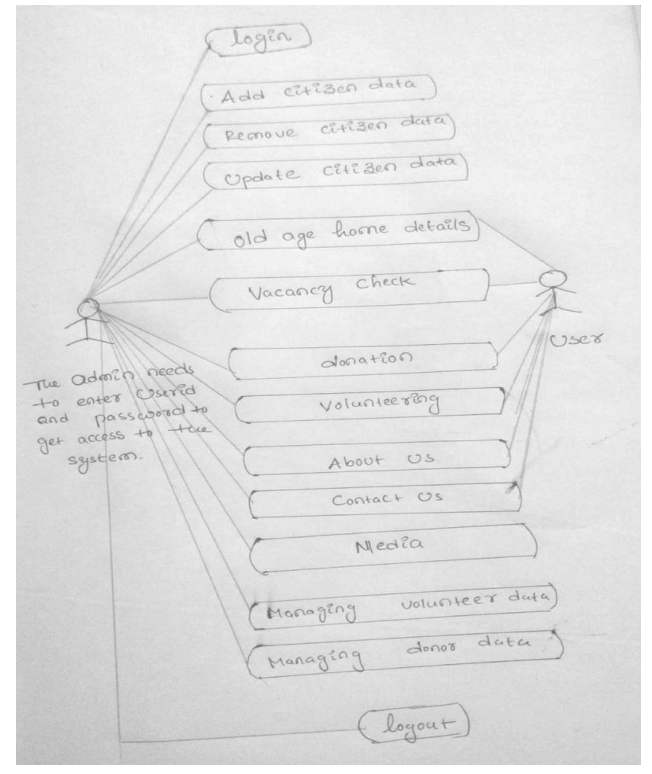 login
Add citizen data
Remove citizen data
Update citizen data
Old age home details
Vacancy check
donation
Volunteering
About us
Contact us
Media
Managing volunteer data
Managing donor data
logout
User
The admin needs
to enter Userid
and password to
get access to the
system.